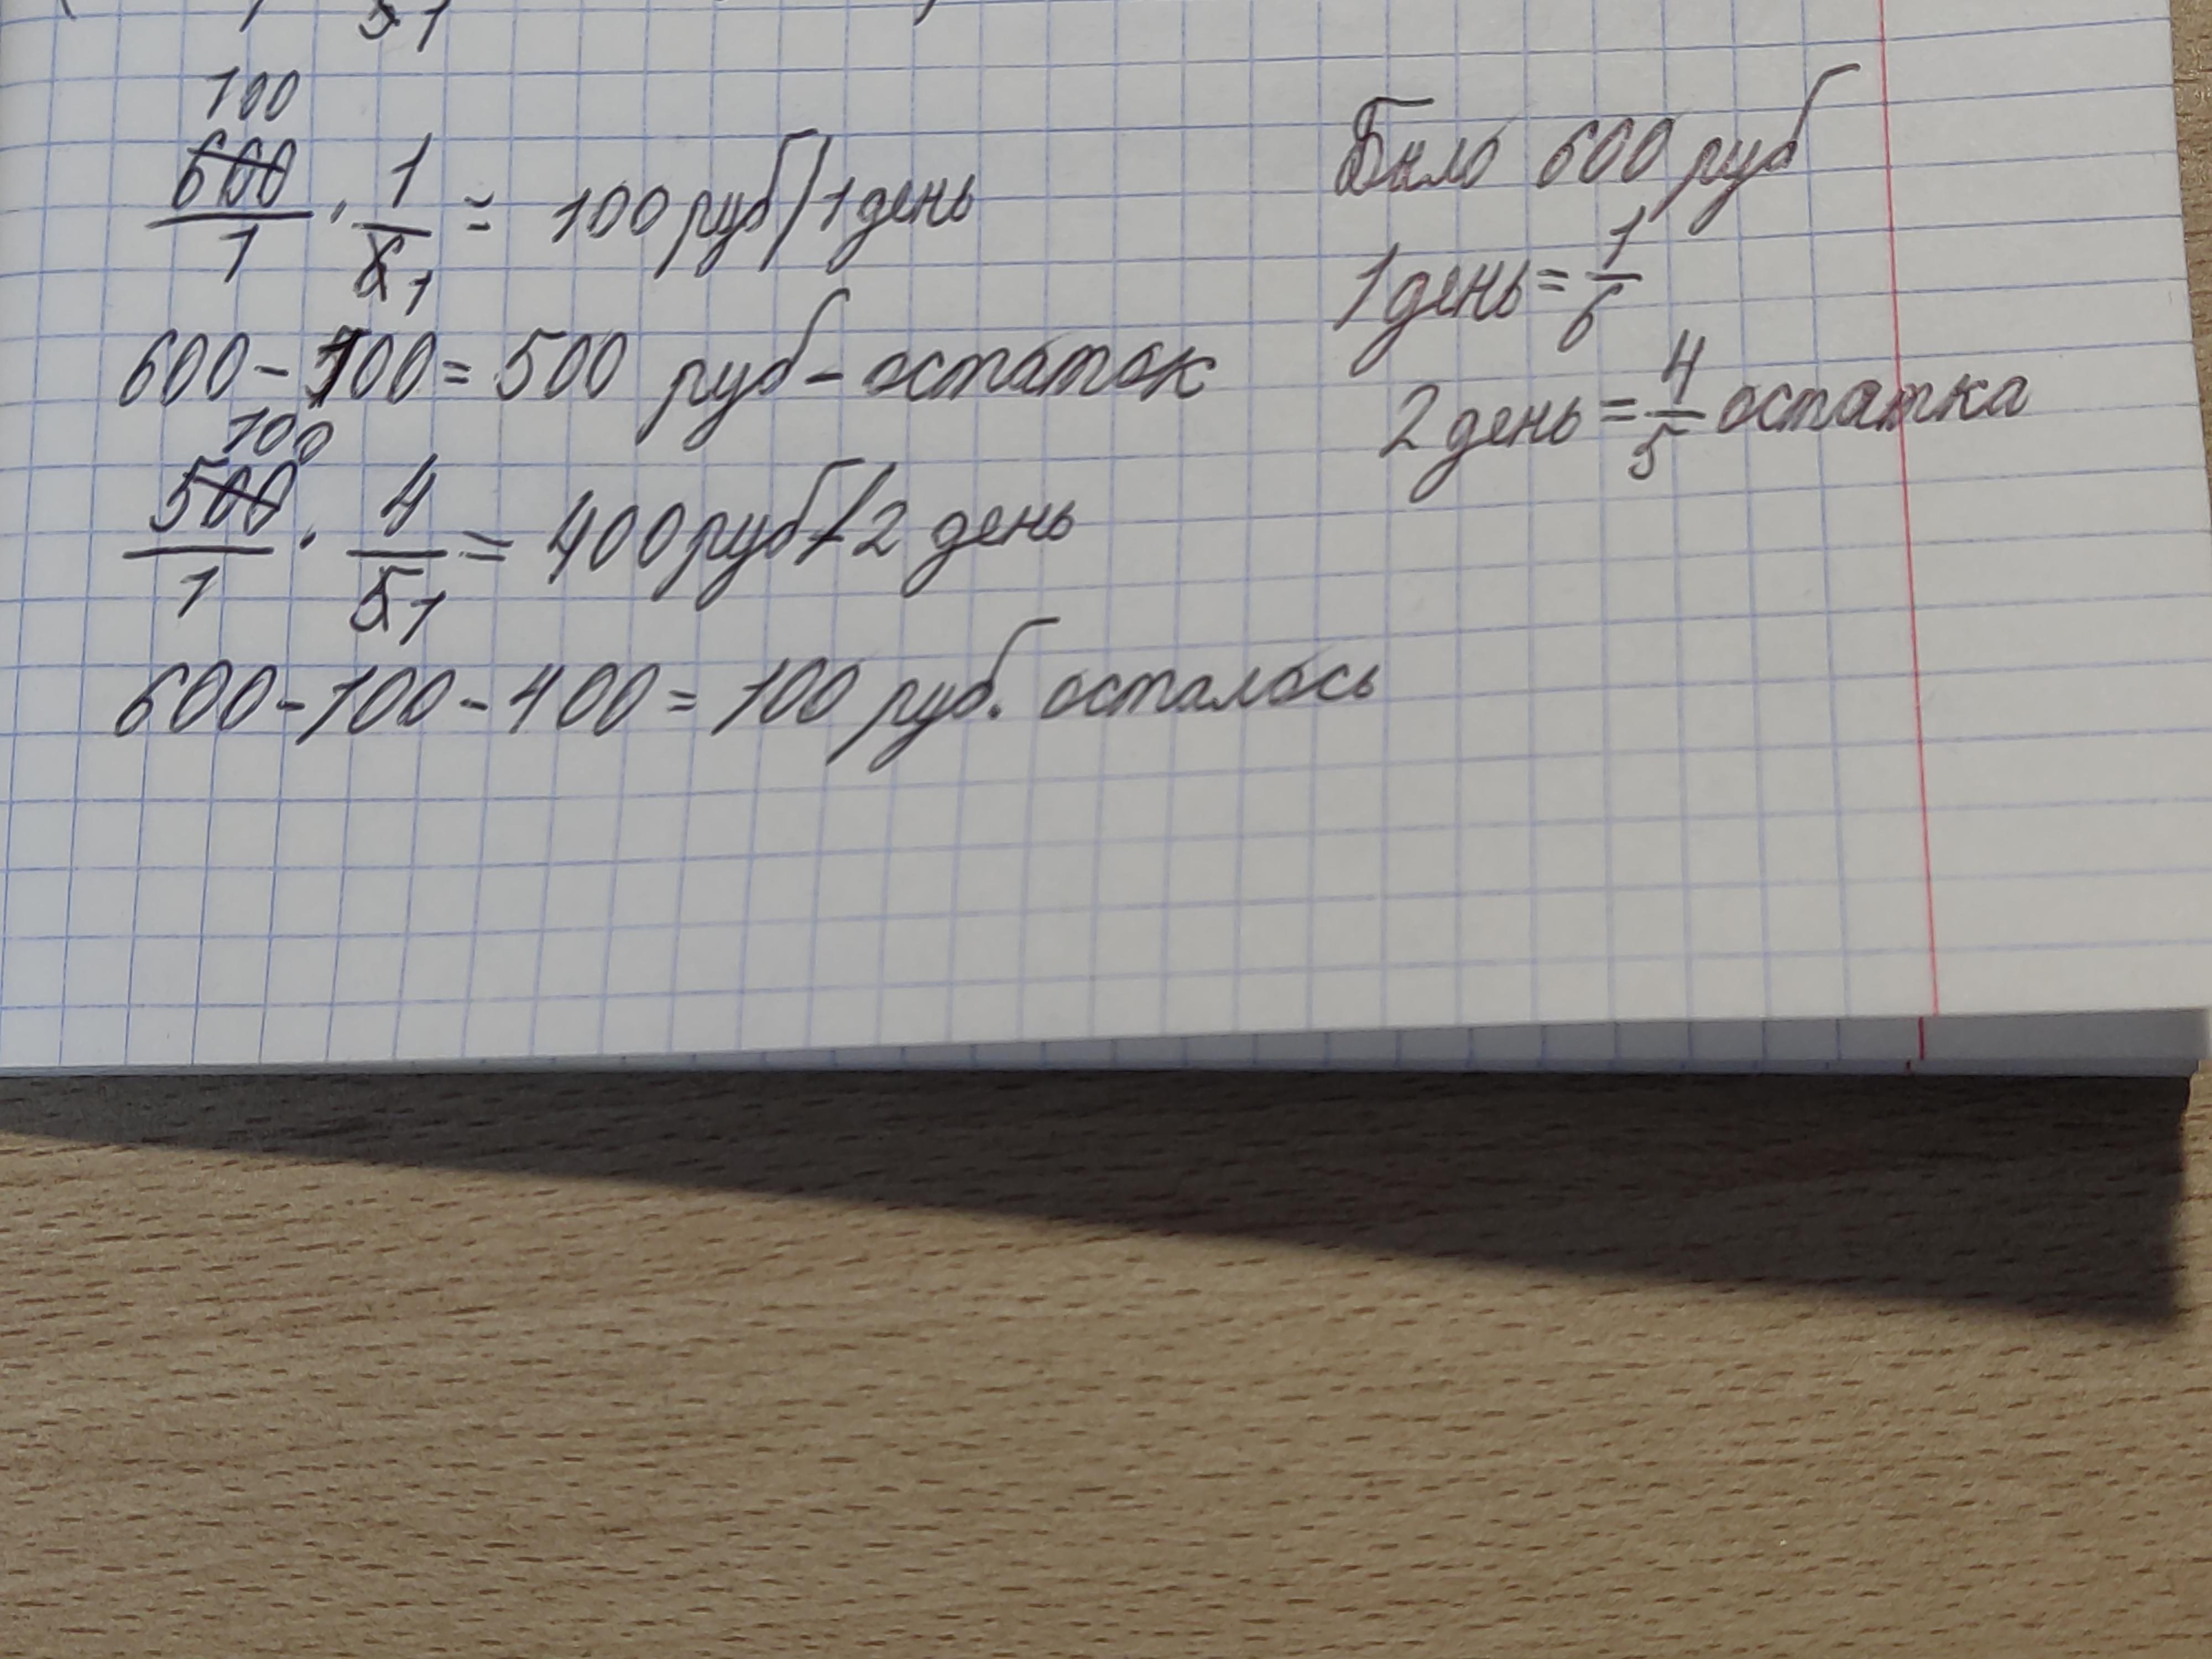 51
100
600/1 · 1/6 1 = 100 руб/1 день
600-100=500 руб-остаток
100
500/1 · 4/5 1 = 400 руб/2 день
600-100-400=100 руб. осталось
Было 600 руб
1 день=1/6
2 день=4/5 остатка